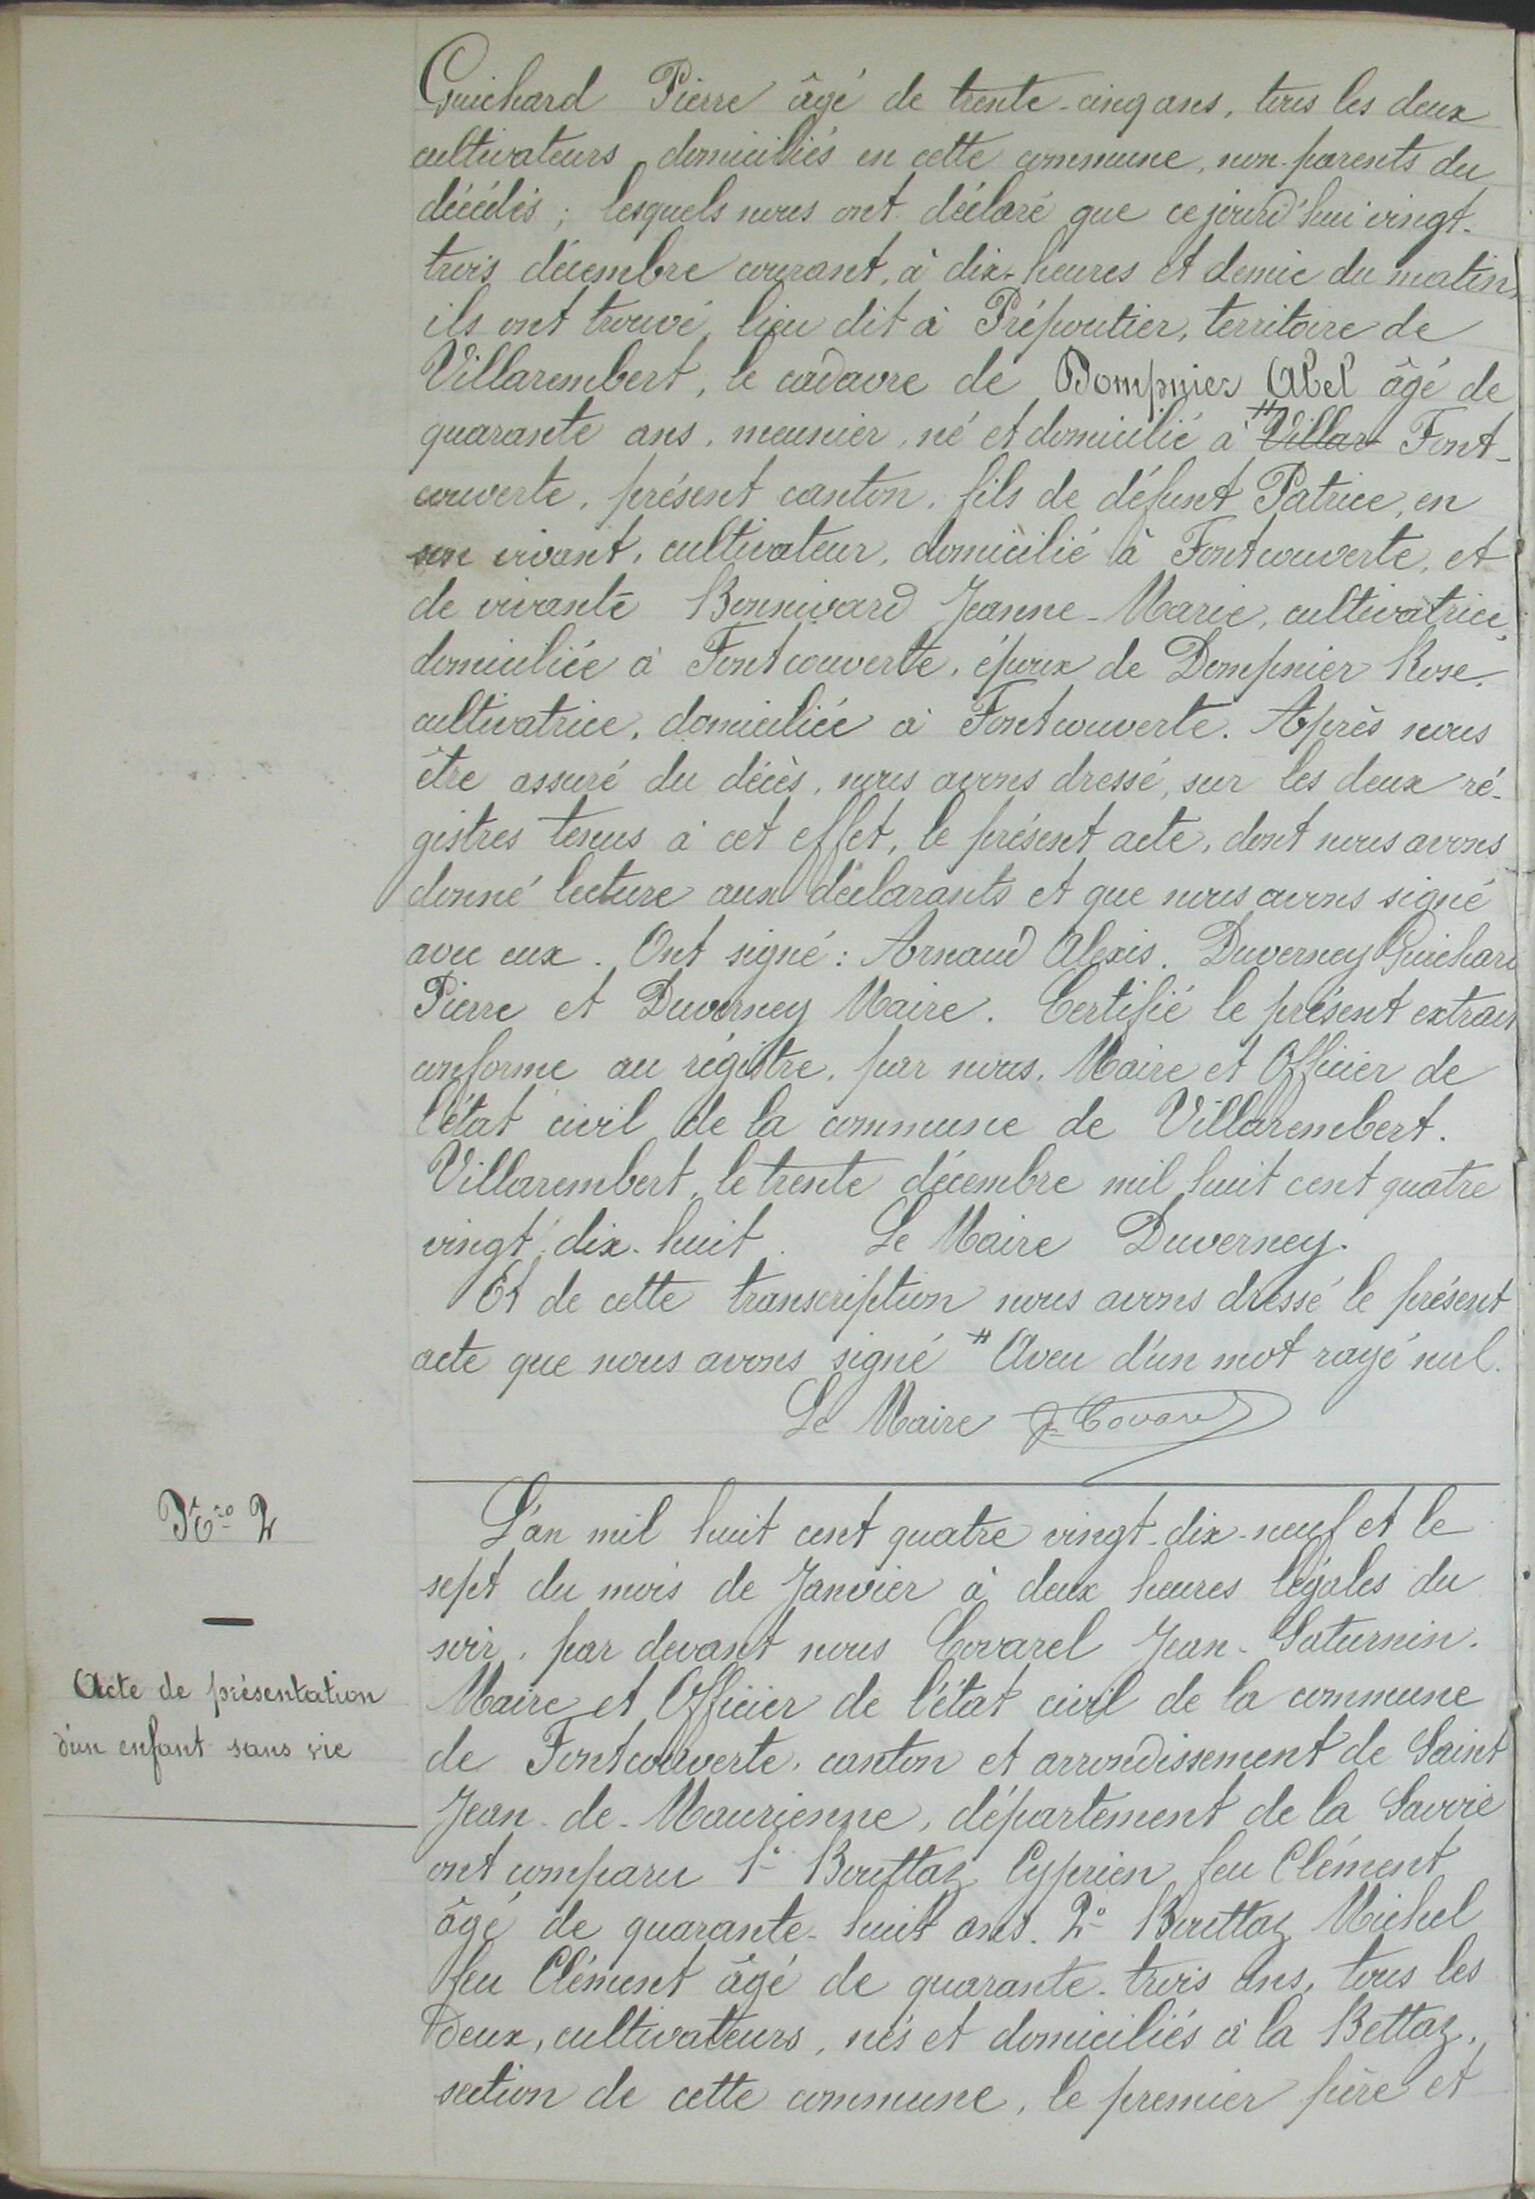 Guichard Pierre âgé de trente-cinq ans, tous les deux
cultivateurs domiciliés en cette commune, non-parents du
décédés ; lesquels nous ont déclaré que cejourd'hui vingt-
trois décembre courant, à dix-heures et demie du matin,
ils ont trouvé, lieu dit à Prépoutier, territoire de
Villarembert, le cadavre de Dompnier Abel âgé de
quarante ans, meunier, né et domicilié à # Villar Font-
couverte, présent canton, fils de défunt Patrice, en
son vivant, cultivateur, domicilié à Fontcouverte, et
de vivante Bonnivard Jeanne-Marie, cultivatrice,
domiciliée à Fontcouverte, époux de Dompnier Rose,
cultivatrice, domiciliée à Fontcouverte. Après nous
être assuré du décès, nous avons dressé, sur les deux ré-
gistres tenus à cet effet, le présent acte, dont nous avons
donné lecture aux déclarants et que nous avons signé
avec eux. Ont signé : Arnaud Alexis. Duverney Guichard
Pierre et Duverney Maire. Certifié le présent extrait
conforme au régistre, par nous, Maire et Officier de
l'état civil de la commune de Villarembert.
Villarembert, le trente décembre mil huit cent quatre
vingt-dix-huit. Le Maire Duverney.
Et de cette transcription nous avons dressé le présent
acte que nous avons signé # Aveu d'un mot rayé nul.
Le Maire J. Covarel
N.ro 2
Acte de présentation
d'un enfant sans vie
L'an mil huit cent quatre vingt-dix-neuf et le
sept du mois de Janvier à deux heures légales du
soir, par devant nous Covarel Jean-Saturnin.
Maire et Officier de l'état civil de la commune
de Fontcouverte, canton et arrondissement de Saint
Jean-de-Maurienne, département de la Savoie
ont comparu 1° Bouttaz Cyprien feu Clément
âgé de quarante-huit ans. 2° Bouttaz Michel
feu Clément âgé de quarante-trois ans, tous les
deux, cultivateurs, nés et domiciliés à la Bettaz,
section de cette commune, le premier père et